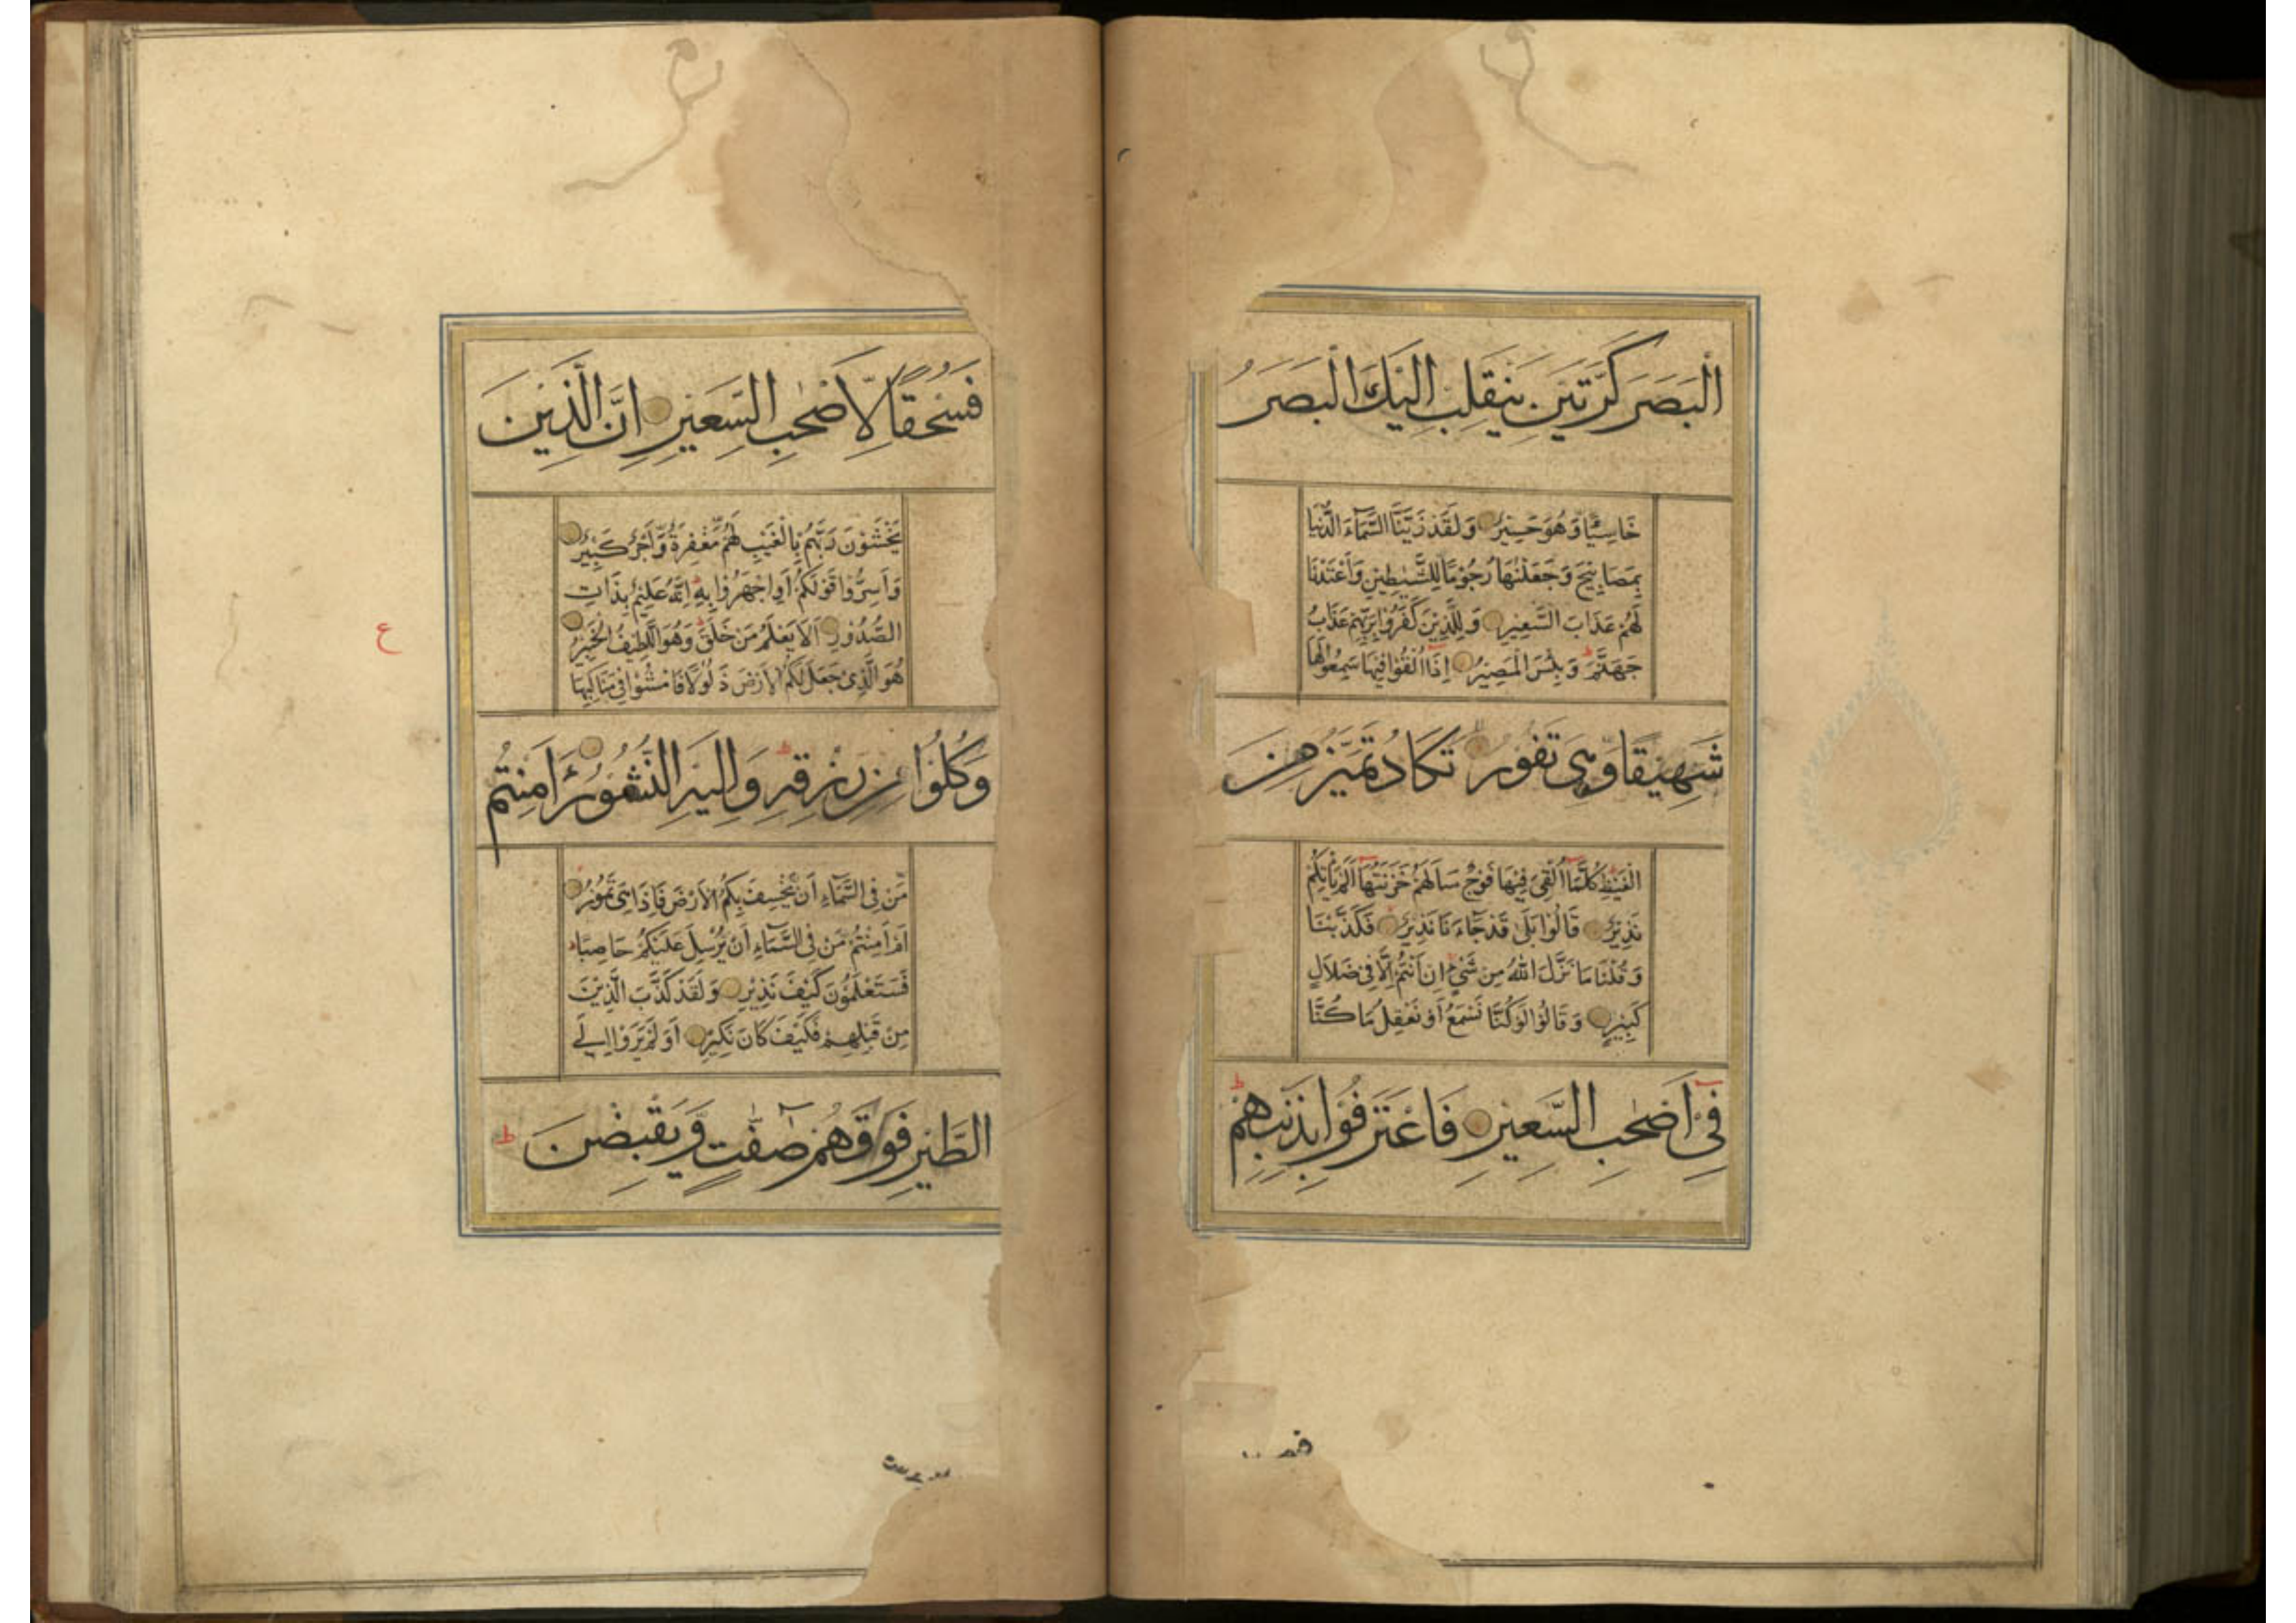 الْبَصَرَ كَرَّتَيْنِ يَنْقَلِبْ اِلَيْكَ الْبَصَرُ
خَاسِئًا وَّهُوَ حَسِيْرٌ وَلَقَدْ زَيَّنَّا السَّمَآءَ الدُّنْيَا
بِمَصَابِيْحَ وَجَعَلْنٰهَا رُجُوْمًا لِّلشَّيٰطِيْنِ وَاَعْتَدْنَا
لَهُمْ عَذَابَ السَّعِيْرِ وَلِلَّذِيْنَ كَفَرُوْا بِرَبِّهِمْ عَذَابُ
جَهَنَّمَ ط وَبِئْسَ الْمَصِيْرُ اِذَآ اُلْقُوْا فِيْهَا سَمِعُوْا لَهَا
شَهِيْقًا وَّهِىَ تَفُوْرُ تَكَادُ تَمَيَّزُ مِنَ
الْغَيْظِ كُلَّمَآ اُلْقِىَ فِيْهَا فَوْجٌ سَاَلَهُمْ خَزَنَتُهَآ اَلَمْ يَاْتِكُمْ
نَذِيْرٌ قَالُوْا بَلٰى قَدْ جَآءَنَا نَذِيْرٌ فَكَذَّبْنَا
وَقُلْنَا مَا نَزَّلَ اللهُ مِنْ شَىْءٍ اِنْ اَنْتُمْ اِلَّا فِىْ ضَلَالٍ
كَبِيْرٍ وَقَالُوْا لَوْ كُنَّا نَسْمَعُ اَوْ نَعْقِلُ مَا كُنَّا
فِىْٓ اَصْحٰبِ السَّعِيْرِ فَاعْتَرَفُوْا بِذَنْبِهِمْ ط
فَسُحْقًا لِّاَصْحٰبِ السَّعِيْرِ اِنَّ الَّذِيْنَ
يَخْشَوْنَ رَبَّهُمْ بِالْغَيْبِ لَهُمْ مَّغْفِرَةٌ وَّاَجْرٌ كَبِيْرٌ
وَاَسِرُّوْا قَوْلَكُمْ اَوِ اجْهَرُوْا بِهٖ اِنَّهٗ عَلِيْمٌ بِذَاتِ
الصُّدُوْرِ اَلَا يَعْلَمُ مَنْ خَلَقَ ط وَهُوَ اللَّطِيْفُ الْخَبِيْرُ
ع
هُوَ الَّذِىْ جَعَلَ لَكُمُ الْاَرْضَ ذَلُوْلًا فَامْشُوْا فِىْ مَنَاكِبِهَا
وَكُلُوْا مِنْ رِّزْقِهٖ ط وَاِلَيْهِ النُّشُوْرُ ءَاَمِنْتُمْ
مَّنْ فِى السَّمَآءِ اَنْ يَّخْسِفَ بِكُمُ الْاَرْضَ فَاِذَا هِىَ تَمُوْرُ
اَمْ اَمِنْتُمْ مَّنْ فِى السَّمَآءِ اَنْ يُّرْسِلَ عَلَيْكُمْ حَاصِبًا ط
فَسَتَعْلَمُوْنَ كَيْفَ نَذِيْرِ وَلَقَدْ كَذَّبَ الَّذِيْنَ
مِنْ قَبْلِهِمْ فَكَيْفَ كَانَ نَكِيْرِ اَوَلَمْ يَرَوْا اِلَى
الطَّيْرِ فَوْقَهُمْ صٰٓفّٰتٍ وَّيَقْبِضْنَ ط